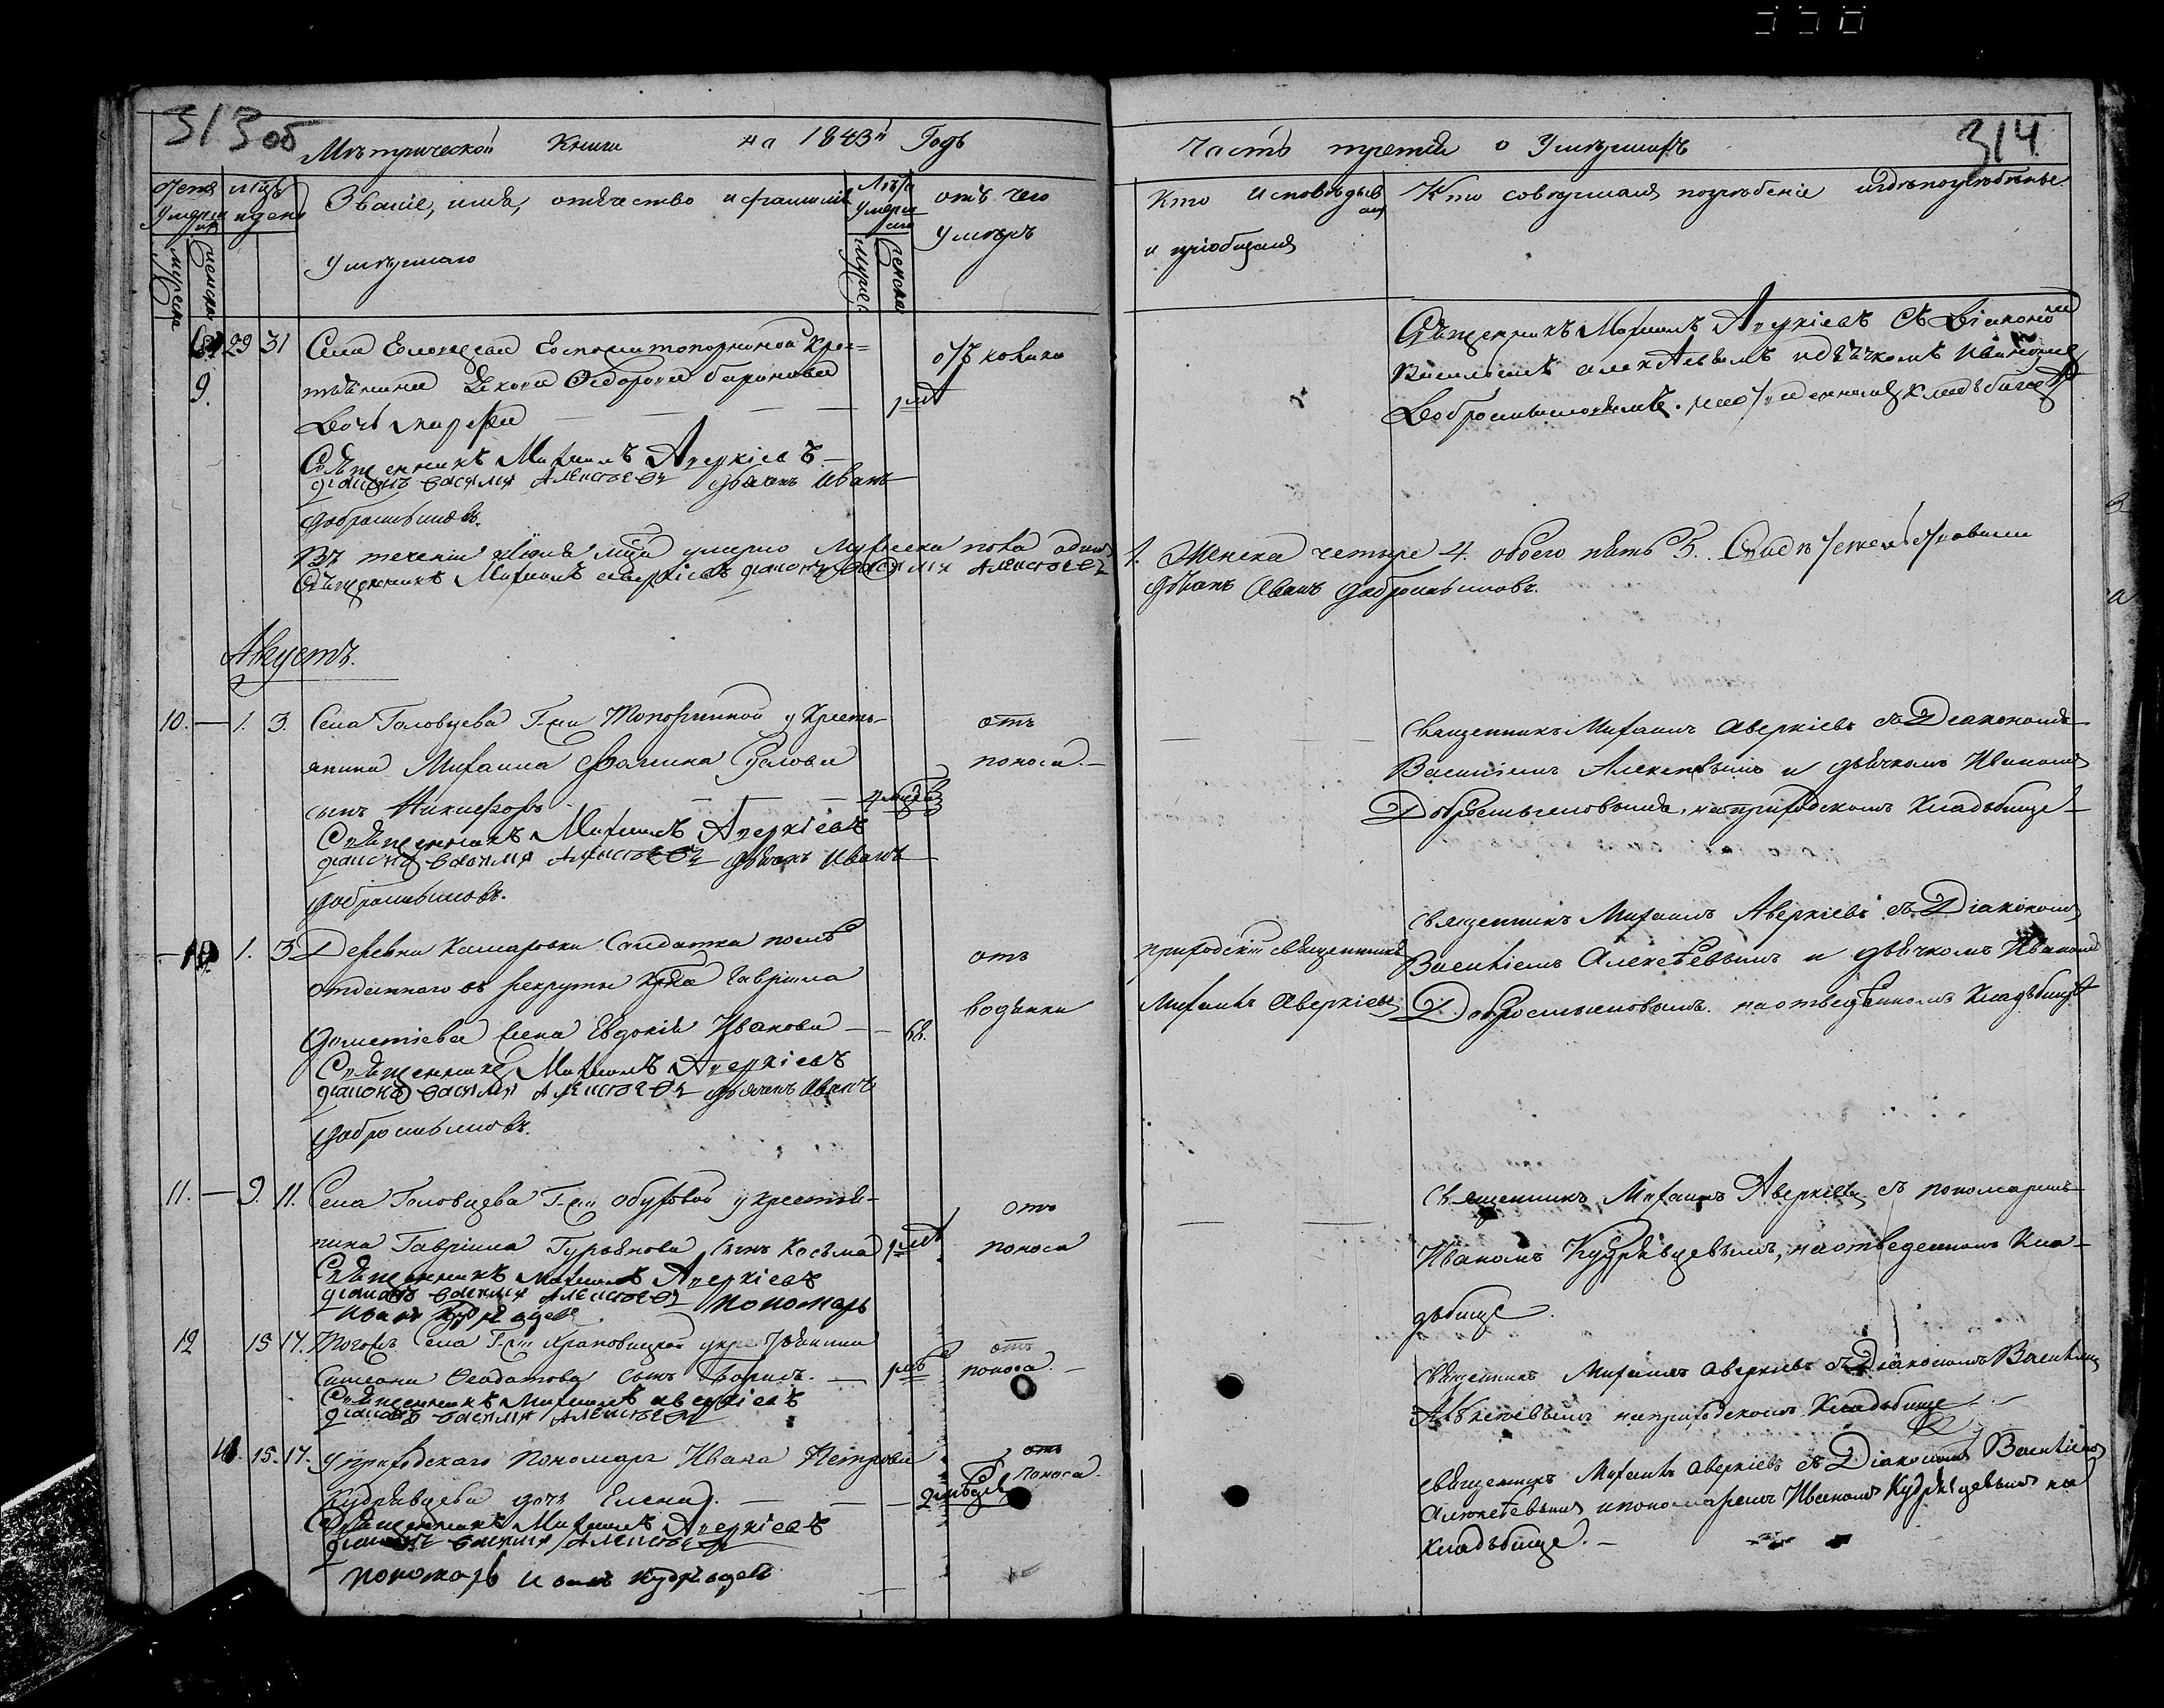 313 об
Метрической Книги на 1843й Годъ
Званіе, имя, отечество и фамилія
умершаго
Лѣта
отъ чего
умеръ
мужеска
женска
29 31 Села Головцева Госпожи Топорниной крес=
тьянина Федорова
9.
дочь Марфа
Священникъ Михаилъ Аверкіевъ
діаконъ Василій Алексѣевъ дьячекъ Иванъ
Добросмысловъ.
Въ теченіи Іюля мца умерло Мужеска пола одинъ
Священникъ Михаилъ Аверкіевъ діаконъ Василій Алексѣевъ
Августъ.
10. — 1. 3. Села Головцева Г-жи Топорниной у Кресть-
янина Михаила Фомина
сынъ Никифоръ
отъ
поноса. —
Священникъ Михаилъ Аверкіевъ
діаконъ Василій Алексѣевъ дьячекъ Иванъ
Добросмысловъ.
— 10. 1. 3. Деревни Комаровки Солдатка
отданнаго въ рекруты Гаврила
жена Евдокія Иванова — 68.
отъ
водянки
Священникъ Михаилъ Аверкіевъ
діаконъ Василій Алексѣевъ дьячекъ Иванъ
Добросмысловъ.
11. — 9. 11. Села Головцева Г-жи Обуховой у крестья-
нина Гавріила Гурьянова сынъ Косьма
отъ
поноса
Священникъ Михаилъ Аверкіевъ
діаконъ Василій Алексѣевъ пономарь
Иванъ Кудрявцевъ
12 15 17. Тогожъ Села Г-жи у крестьянина
Симеона сынъ Борисъ. —
отъ
поноса. —
Священникъ Михаилъ Аверкіевъ
діаконъ Василій Алексѣевъ
11. 15. 17. У приходскаго Пономаря Ивана Петрова
Кудрявцева дочь Елена. —
отъ
поноса.
Священникъ Михаилъ Аверкіевъ
діаконъ Василій Алексѣевъ
пономарь Иванъ Кудрявцевъ
314
Часть третія о Умершихъ
Кто исповѣдывалъ
и пріобщалъ
Кто совершалъ погребеніе и гдѣ погребены
Священникъ Михаилъ Аверкіевъ съ Діакономъ
Василіемъ Алексѣевымъ и дьячкомъ Иваномъ
Добросмысловымъ. на отведенномъ кладбищѣ
1. Женска четыре 4. обоего пять 5.
дьячекъ Иванъ Добросмысловъ.
Священникъ Михаилъ Аверкіевъ съ Діакономъ
Василіемъ Алексѣевымъ и дьячкомъ Иваномъ
Добросмысловымъ, на приходскомъ кладбищѣ
приходскій священникъ
Михаилъ Аверкіевъ
Священникъ Михаилъ Аверкіевъ съ Діакономъ
Василіемъ Алексѣевымъ и дьячкомъ Иваномъ
Добросмысловымъ. на отведенномъ кладбищѣ
Священникъ Михаилъ Аверкіевъ съ пономаремъ
Иваномъ Кудрявцевымъ, на отведенномъ кла-
дбищѣ.
Священникъ Михаилъ Аверкіевъ съ Діакономъ Василіемъ
Алексѣевымъ на приходскомъ кладбищѣ
Священникъ Михаилъ Аверкіевъ съ Діакономъ Василіемъ
Алексѣевымъ и пономаремъ Иваномъ Кудрявцевымъ на
кладбищѣ. —